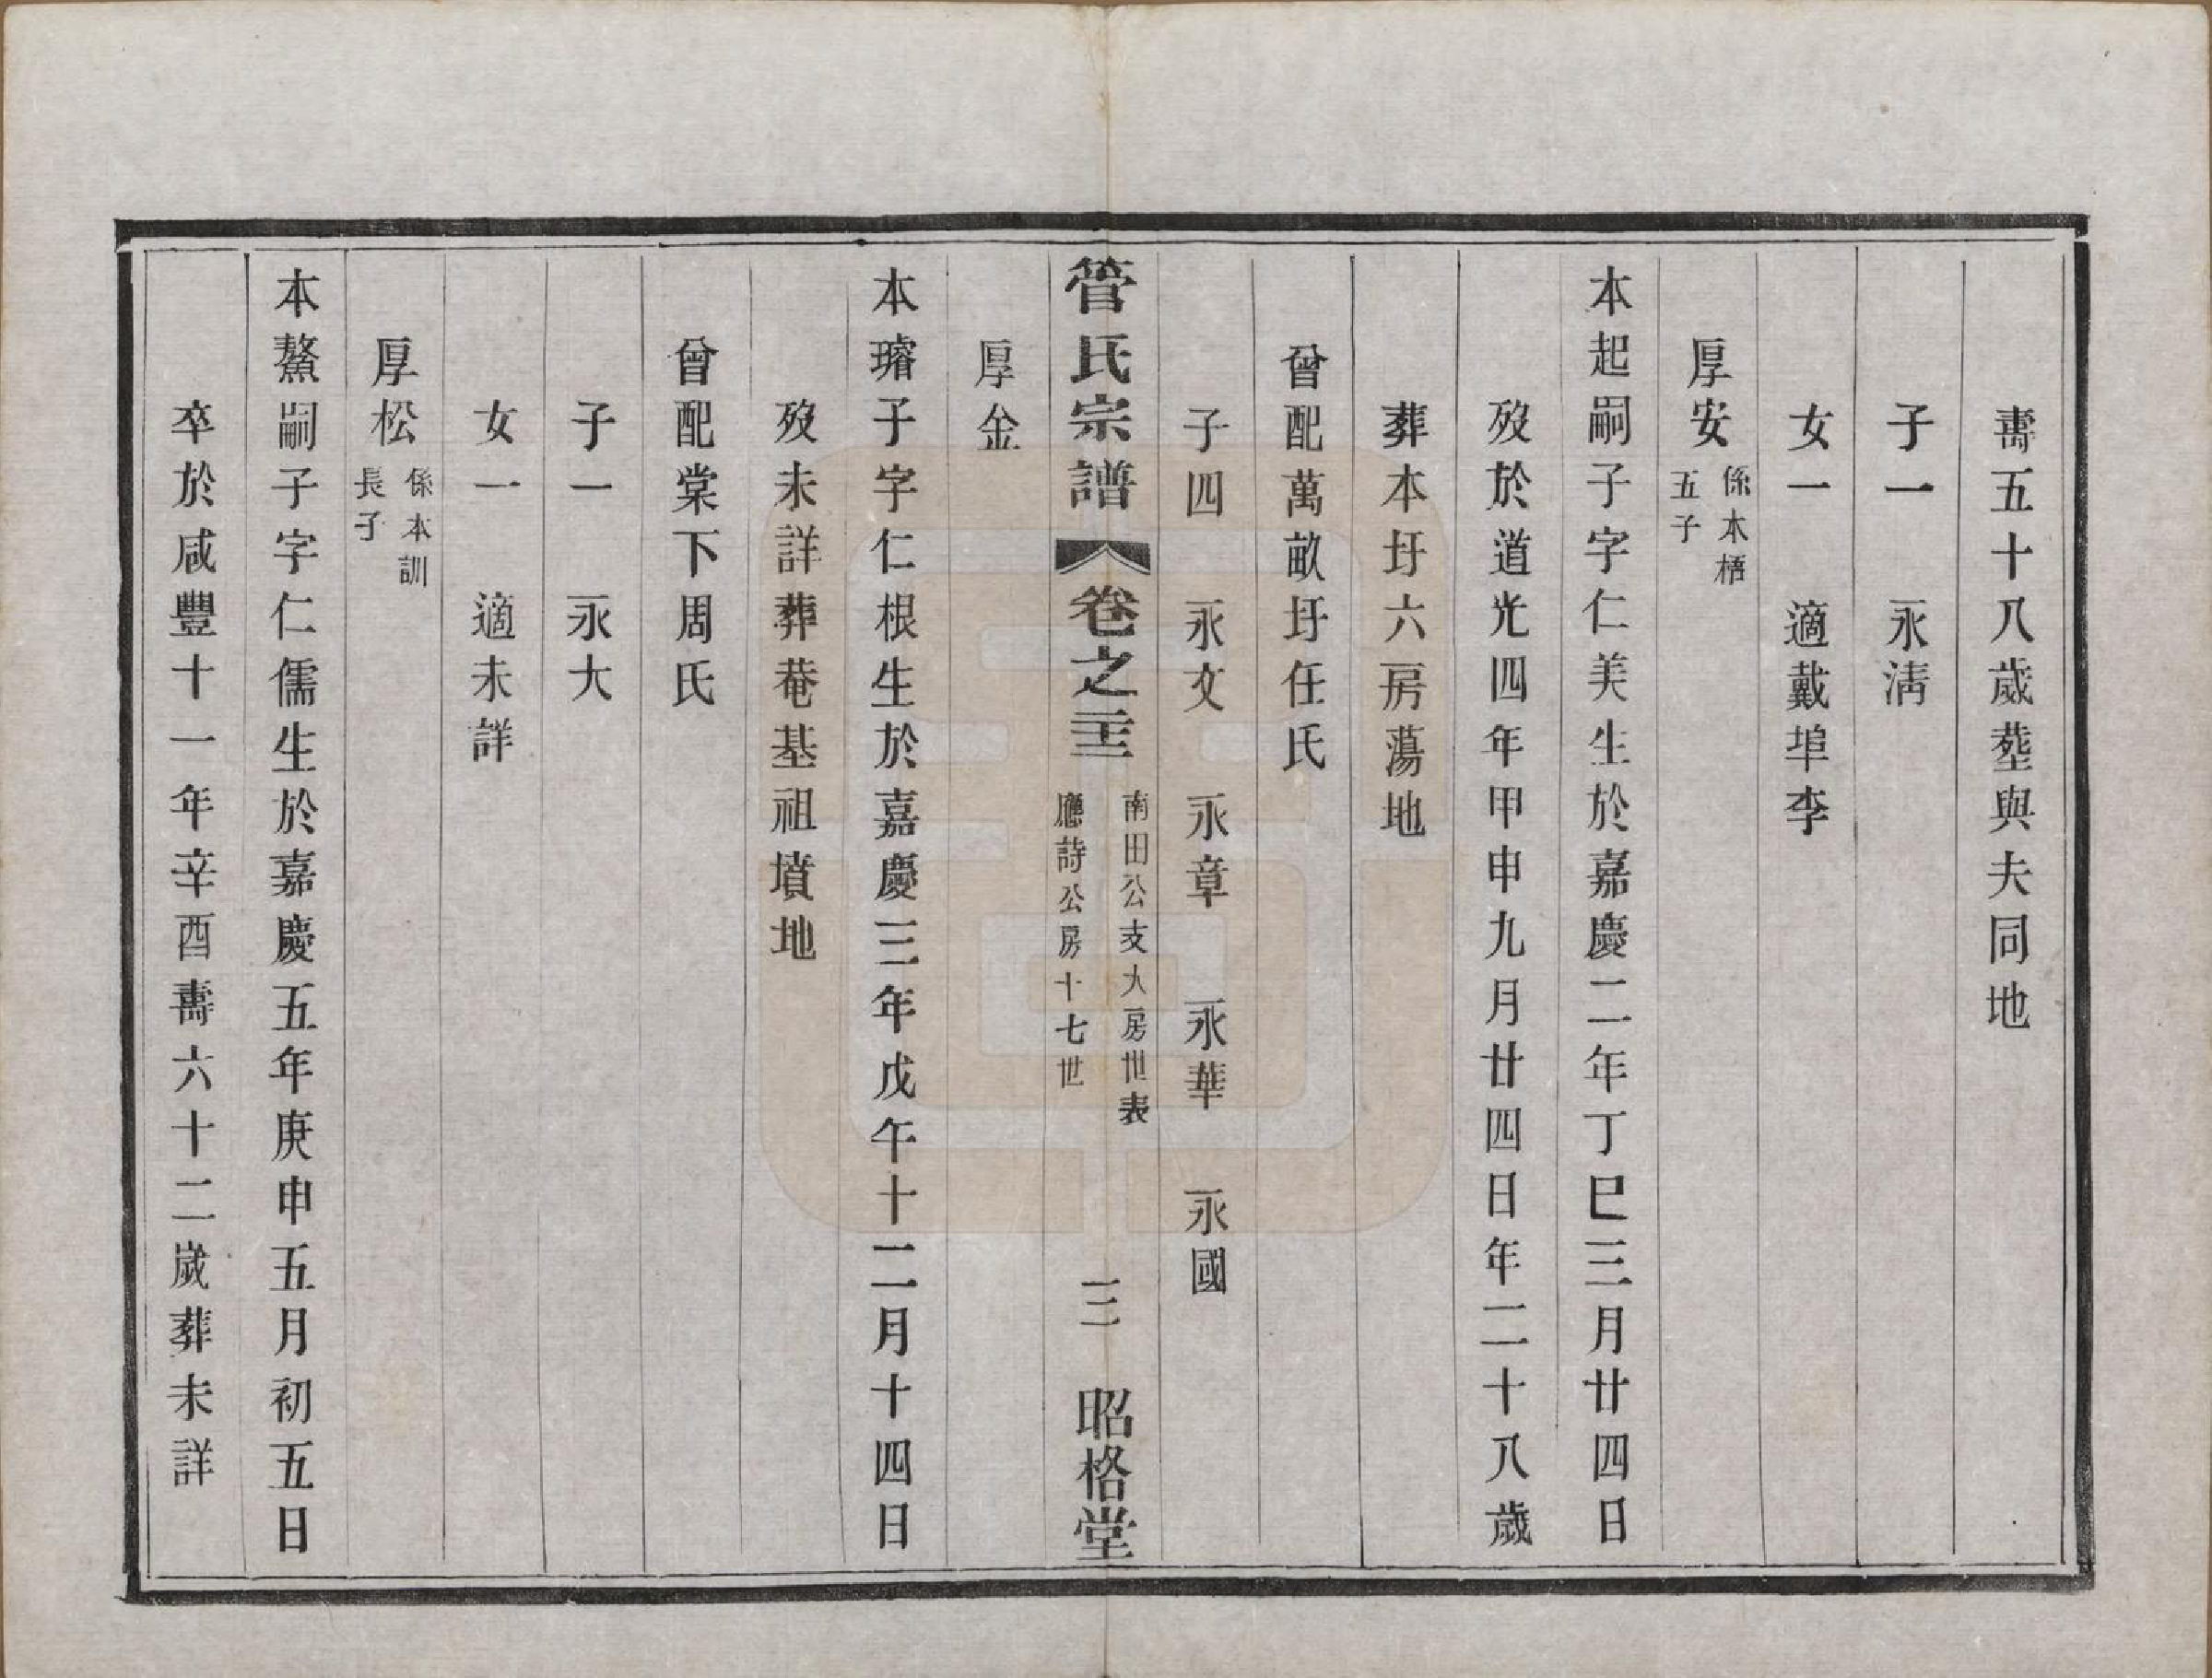 壽五十八歲塟與夫同地
子一　永清
女一　適戴埠李
厚安 係本梧五子
本起嗣子字仁美生於嘉慶二年丁巳三月廿四日
歿於道光四年甲申九月廿四日年二十八歲
葬本圩六房蕩地
曾配萬畝圩任氏
子四　永文　永章　永華　永國
管氏宗譜　卷之二十三　南田公支大房世表　應詩公房十七世　三　昭格堂
厚金
本璿子字仁根生於嘉慶三年戊午十二月十四日
歿未詳葬菴基祖墳地
曾配棠下周氏
子一　永大
女一　適未詳
厚松 係本訓長子
本鰲嗣子字仁儒生於嘉慶五年庚申五月初五日
卒於咸豐十一年辛酉壽六十二歲葬未詳